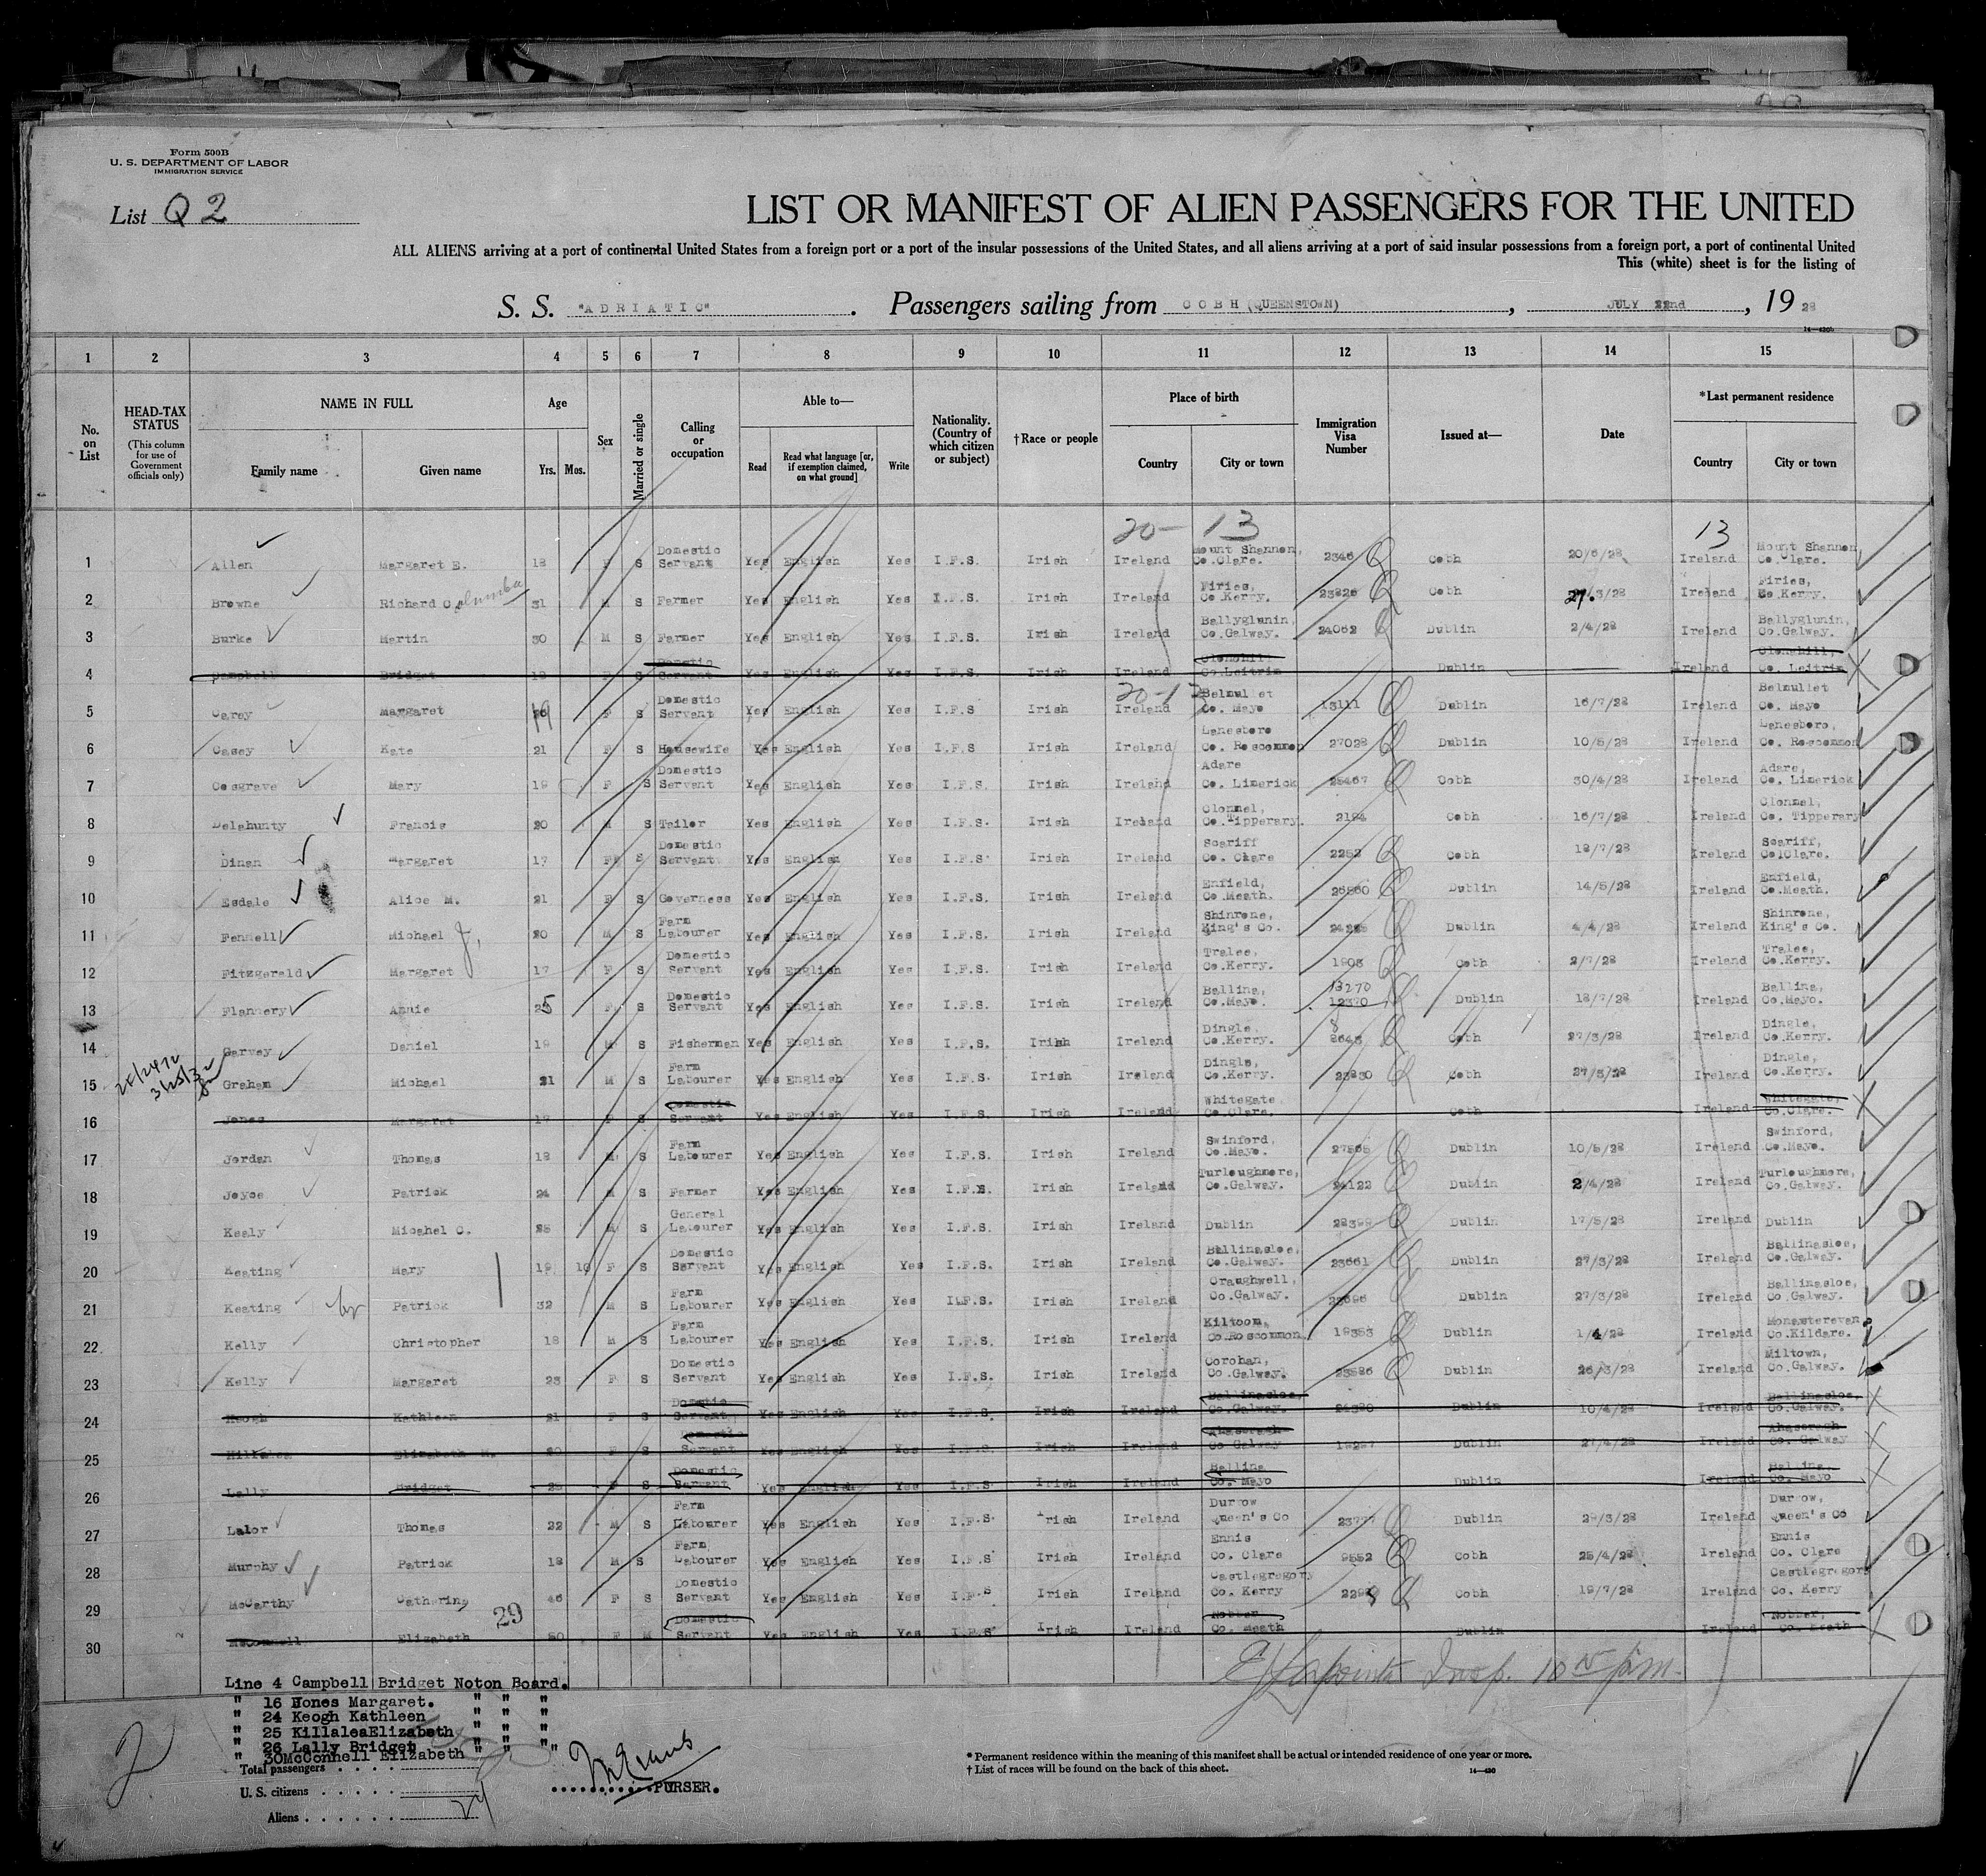 Form 500B
U. S. DEPARTMENT OF LABOR
IMMIGRATION SERVICE
List Q 2
LIST OR MANIFEST OF ALIEN PASSENGERS FOR THE UNITED
ALL ALIENS arriving at a port of continental United States from a foreign port or a port of the insular possessions of the United States, and all aliens arriving at a port of said insular possessions from a foreign port, a port of continental United
This (white) sheet is for the listing of
S. S. "ADRIATIC". Passengers sailing from COBH (QUEENSTOWN), JULY 22nd, 19 28
14—420b
1 2 3 4 5 6 7 8 9 10 11 12 13 14 15
No. on List
HEAD-TAX STATUS (This column for use of Government officials only)
NAME IN FULL Family name Given name
Age Yrs. Mos.
Sex
Married or single
Calling or occupation
Able to— Read Read what language [or, if exemption claimed, on what ground] Write
Nationality. (Country of which citizen or subject)
†Race or people
Place of birth Country City or town
Immigration Visa Number
Issued at—
Date
*Last permanent residence Country City or town
20- 13 13
1 Allen Margaret E. 18 F S Domestic Servant Yes English Yes I.F.S. Irish Ireland Mount Shannon, Co.Clare. 2346 Cobh 20/6/28 Ireland Mount Shannon Co.Clare.
2 Browne Richard Columba 31 M S Farmer Yes English Yes I.F.S. Irish Ireland Firies, Co.Kerry. 23826 Cobh 27/3/28 Ireland Firies, Co.Kerry.
3 Burke Martin 30 M S Farmer Yes English Yes I.F.S. Irish Ireland Ballyglunin, Co.Galway. 24062 Dublin 2/4/28 Ireland Ballyglunin, Co.Galway.
4 Campbell Bridget 18 F S Domestic Servant Yes English Yes I.F.S. Irish Ireland Co.Leitrim Dublin Ireland Co. Leitrim
20-13
5 Carey Margaret 19 F S Domestic Servant Yes English Yes I.F.S Irish Ireland Belmullet Co. Mayo 13111 Dublin 16/7/28 Ireland Belmullet Co. Mayo
6 Casey Kate 21 F S Housewife Yes English Yes I.F.S Irish Ireland Lanesboro Co. Roscommon 27028 Dublin 10/5/28 Ireland Lanesboro, Co. Roscommon
7 Cosgrave Mary 19 F S Domestic Servant Yes English Yes I.F.S. Irish Ireland Adare Co. Limerick 25467 Cobh 30/4/28 Ireland Adare, Co. Limerick
8 Delahunty Francis 20 M S Tailor Yes English Yes I.F.S. Irish Ireland Clonmel, Co.Tipperary. 2194 Cobh 16/7/28 Ireland Clonmel, Co. Tipperary
9 Dinan Margaret 17 F S Domestic Servant Yes English Yes I.F.S. Irish Ireland Scariff Co. Clare 2252 Cobh 18/7/28 Ireland Scariff, Co.Clare.
10 Esdale Alice M. 21 F S Governess Yes English Yes I.F.S. Irish Ireland Enfield, Co.Meath. 26860 Dublin 14/5/28 Ireland Enfield, Co.Meath.
11 Fennell Michael J. 20 M S Farm Labourer Yes English Yes I.F.S. Irish Ireland Shinrone, King's Co. Dublin 4/4/28 Ireland Shinrone, King's Co.
12 Fitzgerald Margaret 17 F S Domestic Servant Yes English Yes I.F.S. Irish Ireland Tralee, Co.Kerry. 1903 Cobh 2/7/28 Ireland Tralee, Co.Kerry.
13 Flannery Annie 25 F S Domestic Servant Yes English Yes I.F.S. Irish Ireland Ballina, Co.Mayo. 13270 12370 Dublin 18/7/28 Ireland Ballina, Co.Mayo.
14 Garvey Daniel 19 M S Fisherman Yes English Yes I.F.S. Irish Ireland Dingle, Co.Kerry. Cobh 27/3/28 Ireland Dingle, Co.Kerry.
15 Graham Michael 21 M S Farm Labourer Yes English Yes I.F.S. Irish Ireland Dingle, Co.Kerry. 23830 Cobh 27/3/28 Ireland Dingle, Co.Kerry.
16 Jones Margaret 17 F S Domestic Servant Yes English Yes I.F.S. Irish Ireland Whitegate Co.Clare. Cobh Ireland Whitegate, Co.Clare.
17 Jordan Thomas 18 M S Farm Labourer Yes English Yes I.F.S. Irish Ireland Swinford, Co.Mayo. 27565 Dublin 10/5/28 Ireland Swinford, Co.Mayo.
18 Joyce Patrick 24 M S Farmer Yes English Yes I.F.S. Irish Ireland Turloughmore, Co.Galway. 24122 Dublin 2/4/28 Ireland Turloughmore, Co.Galway.
19 Kealy Micahel C. 28 M S General Labourer Yes English Yes I.F.S. Irish Ireland Dublin 28399 Dublin 17/5/28 Ireland Dublin
20 Keating Mary 19 10 F S Domestic Servant Yes English Yes I.F.S. Irish Ireland Ballinasloe, Co.Galway. 23661 Dublin 27/3/28 Ireland Ballinasloe, Co.Galway.
21 Keating Patrick 32 M S Farm Labourer Yes English Yes I.F.S. Irish Ireland Craughwell, Co.Galway. 23696 Dublin 27/3/28 Ireland Ballinasloe, Co.Galway.
22 Kelly Christopher 18 M S Farm Labourer Yes English Yes I.F.S. Irish Ireland Kiltoom, Co.Roscommon. 19353 Dublin 1/4/28 Ireland Monasterevan, Co.Kildare.
23 Kelly Margaret 23 F S Domestic Servant Yes English Yes I.F.S. Irish Ireland Corohan, Co.Galway. 23586 Dublin 26/3/28 Ireland Miltown, Co.Galway.
24 Keogh Kathleen 21 F S Domestic Servant Yes English Yes I.F.S. Irish Ireland Ballinasloe, Co.Galway. Dublin 10/4/28 Ireland Ballinasloe, Co.Galway.
25 Killalea Elizabeth M. 20 F S Domestic Servant Yes English Yes I.F.S. Irish Ireland Ahascragh Co Galway Dublin 27/4/28 Ireland Ahascragh Co. Galway
26 Lally Bridget 25 F S Domestic Servant Yes English Yes I.F.S Irish Ireland Ballina Co. Mayo Dublin Ireland Ballina, Co. Mayo
27 Lalor Thomas 22 M S Farm Labourer Yes English Yes I.F.S. Irish Ireland Durrow Queen's Co 23777 Dublin 29/3/28 Ireland Durrow, Queen's Co
28 Murphy Patrick 18 M S Farm Labourer Yes English Yes I.F.S Irish Ireland Ennis Co. Clare 9552 Cobh 25/4/28 Ireland Ennis Co. Clare
29 McCarthy Catherine 46 F S Domestic Servant Yes English Yes I.F.S Irish Ireland Castlegregory Co. Kerry Cobh 19/7/28 Ireland Castlegregory Co. Kerry
29
30 McConnell Elizabeth 50 F M Domestic Servant Yes English Yes I.F.S Irish Ireland Nobber Co. Meath Dublin Ireland Nobber, Co. Meath
Insp.
Line 4 Campbell Bridget Noton Board.
" 16 Hones Margaret. " " "
" 24 Keogh Kathleen " " "
" 25 KillaleaElizabeth " " "
" 26 Lally Bridget " " "
" 30McConnell Elizabeth " " "
Total passengers
U. S. citizens
Aliens 24
PURSER.
2
* Permanent residence within the meaning of this manifest shall be actual or intended residence of one year or more.
† List of races will be found on the back of this sheet.
14—420